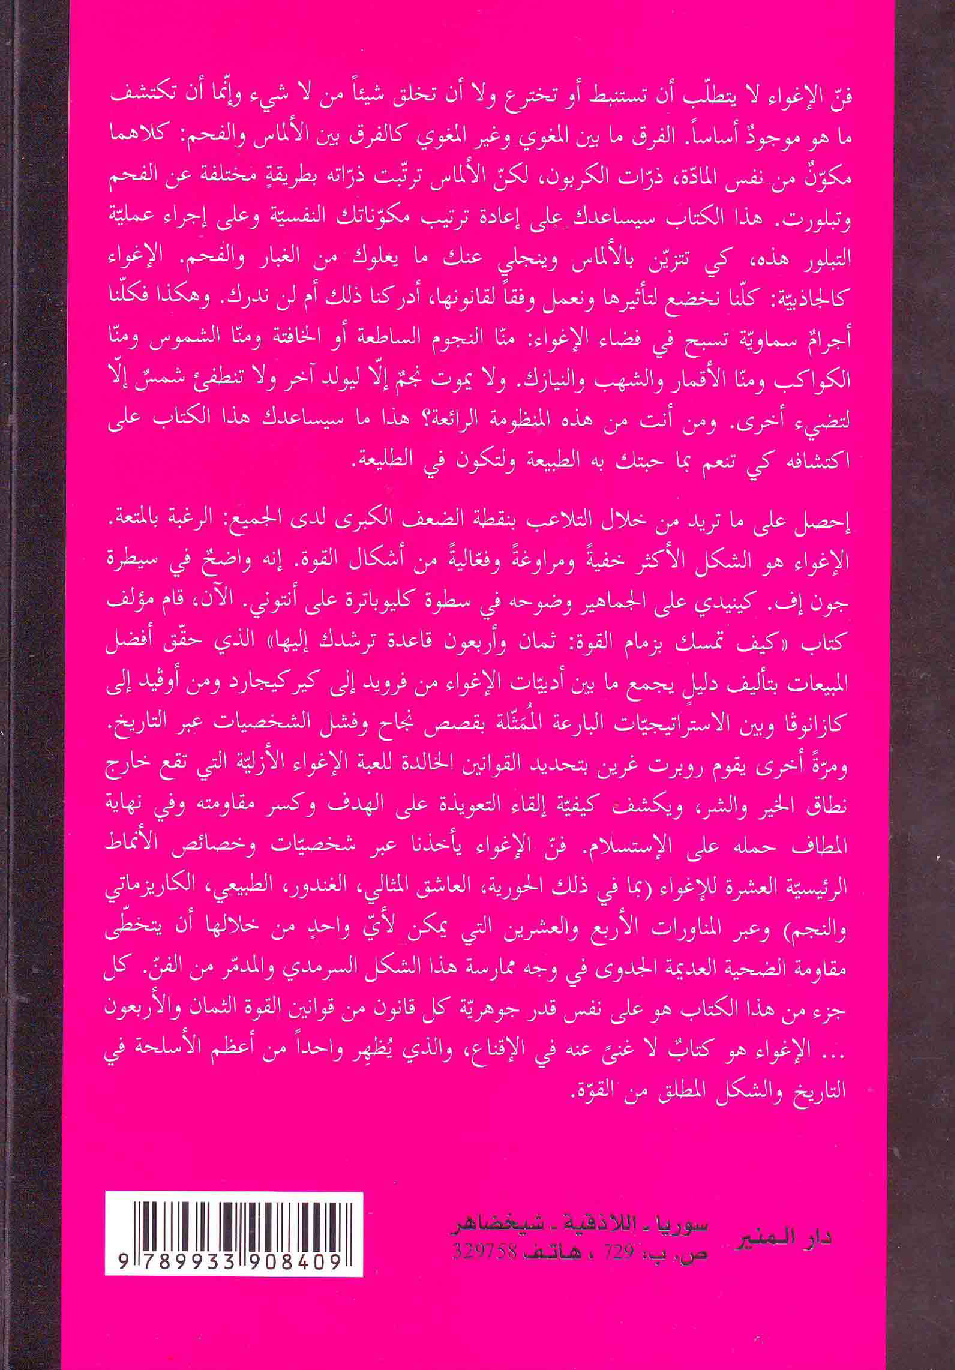 فنّ الإغواء لا يتطلّب أن تستنبط أو تخترع ولا أن تخلق شيئاً من لا شيء وإنّما أن تكتشف
ما هو موجودٌ أساساً. الفرق ما بين المغوي وغير المغوي كالفرق بين الألماس والفحم: كلاهما
مكوّنٌ من نفس المادّة، ذرّات الكربون، لكنّ الألماس ترتّبت ذرّاته بطريقةٍ مختلفة عن الفحم
وتبلورت. هذا الكتاب سيساعدك على إعادة ترتيب مكوّناتك النفسيّة وعلى إجراء عمليّة
التبلور هذه، كي تتزيّن بالألماس وينجلي عنك ما يعلوك من الغبار والفحم. الإغواء
كالجاذبيّة: كلّنا نخضع لتأثيرها ونعمل وفقاً لقانونها، أدركنا ذلك أم لن ندرك. وهكذا فكلّنا
أجرامٌ سماويّة تسبح في فضاء الإغواء: منّا النجوم الساطعة أو الخافتة ومنّا الشموس ومنّا
الكواكب ومنّا الأقمار والشهب والنيازك. ولا يموت نجمٌ إلّا ليولد آخر ولا تنطفئ شمسٌ إلّا
لتضيء أخرى. ومن أنت من هذه المنظومة الرائعة؟ هذا ما سيساعدك هذا الكتاب على
اكتشافه كي تنعم بما حبتك به الطبيعة ولتكون في الطليعة.
إحصل على ما تريد من خلال التلاعب بنقطة الضعف الكبرى لدى الجميع: الرغبة بالمتعة.
الإغواء هو الشكل الأكثر خفيةً ومراوغةً وفعّاليةً من أشكال القوة. إنه واضحٌ في سيطرة
جون إف. كينيدي على الجماهير وضوحه في سطوة كليوباترة على أنتوني. الآن، قام مؤلف
كتاب «كيف تمسك بزمام القوة: ثمان وأربعون قاعدة ترشدك إليها» الذي حقّق أفضل
المبيعات بتأليف دليلٍ يجمع ما بين أدبيّات الإغواء من فرويد إلى كيركيجارد ومن أوڤيد إلى
كازانوڤا وبين الاستراتيجيّات البارعة المُمَثّلة بقصص نجاح وفشل الشخصيات عبر التاريخ.
ومرّةً أخرى يقوم روبرت غرين بتحديد القوانين الخالدة للعبة الإغواء الأزليّة التي تقع خارج
نطاق الخير والشر، ويكشف كيفيّة إلقاء التعويذة على الهدف وكسر مقاومته وفي نهاية
المطاف حمله على الإستسلام. فنّ الإغواء يأخذنا عبر شخصيّات وخصائص الأنماط
الرئيسيّة العشرة للإغواء (بما في ذلك الحورية، العاشق المثالي، الغندور، الطبيعي، الكاريزماتي
والنجم) وعبر المناورات الأربع والعشرين التي يمكن لأيّ واحدٍ من خلالها أن يتخطّى
مقاومة الضحية العديمة الجدوى في وجه ممارسة هذا الشكل السرمدي والمدمّر من الفنّ. كل
جزء من هذا الكتاب هو على نفس قدر جوهريّة كل قانون من قوانين القوة الثمان والأربعون
... الإغواء هو كتابٌ لا غنىً عنه في الإقناع، والذي يُظهِر واحداً من أعظم الأسلحة في
التاريخ والشكل المطلق من القوّة.
دار المنير
سوريا - اللاذقية - شيخضاهر
ص. ب: 729 ، هاتف 329758
9 789933 908409